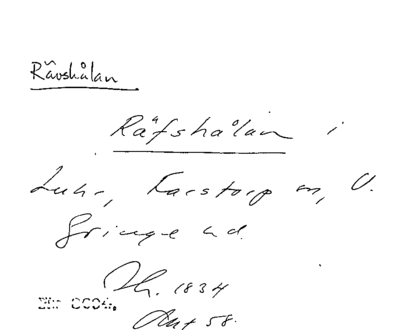 Rävshålan
Räfshålan i
Luhr, Karstorp m, V.
Göinge hd.
Th. 1834
Ant 58.